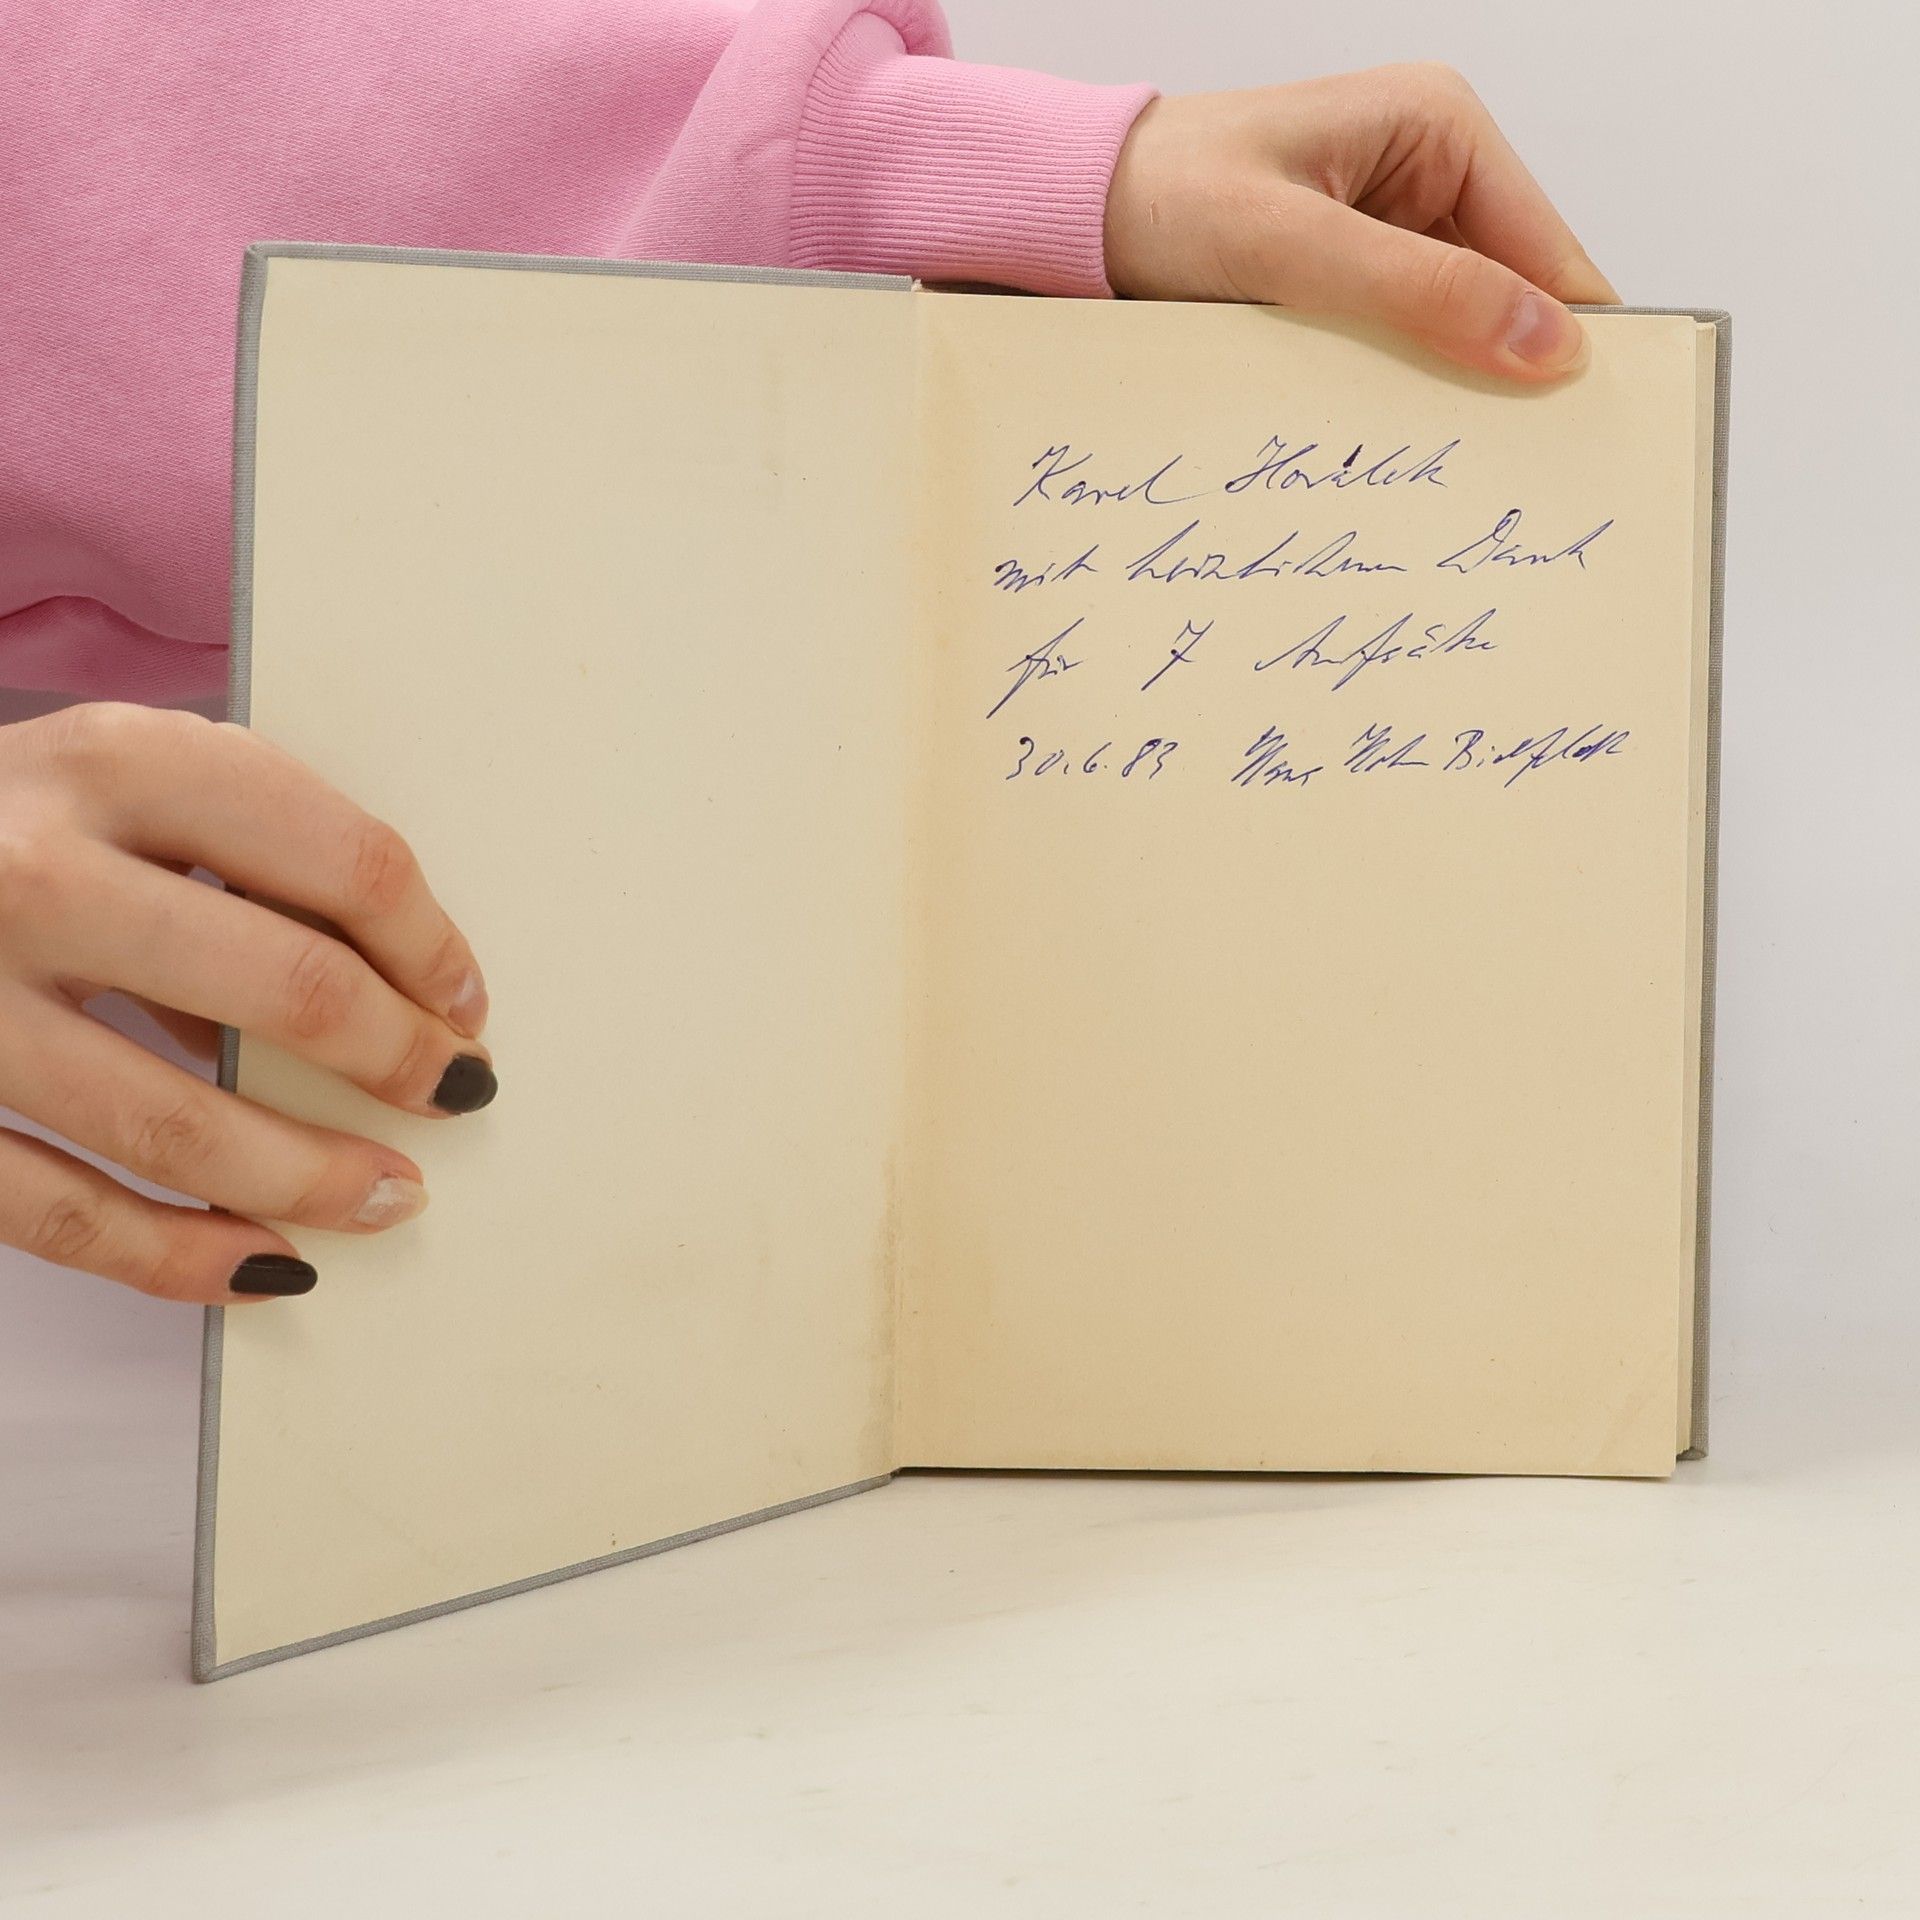 Karel Horálek
mit herzlichem Dank
für 7 Aufsätze
30.6.83 Hans Holm Bielfeldt